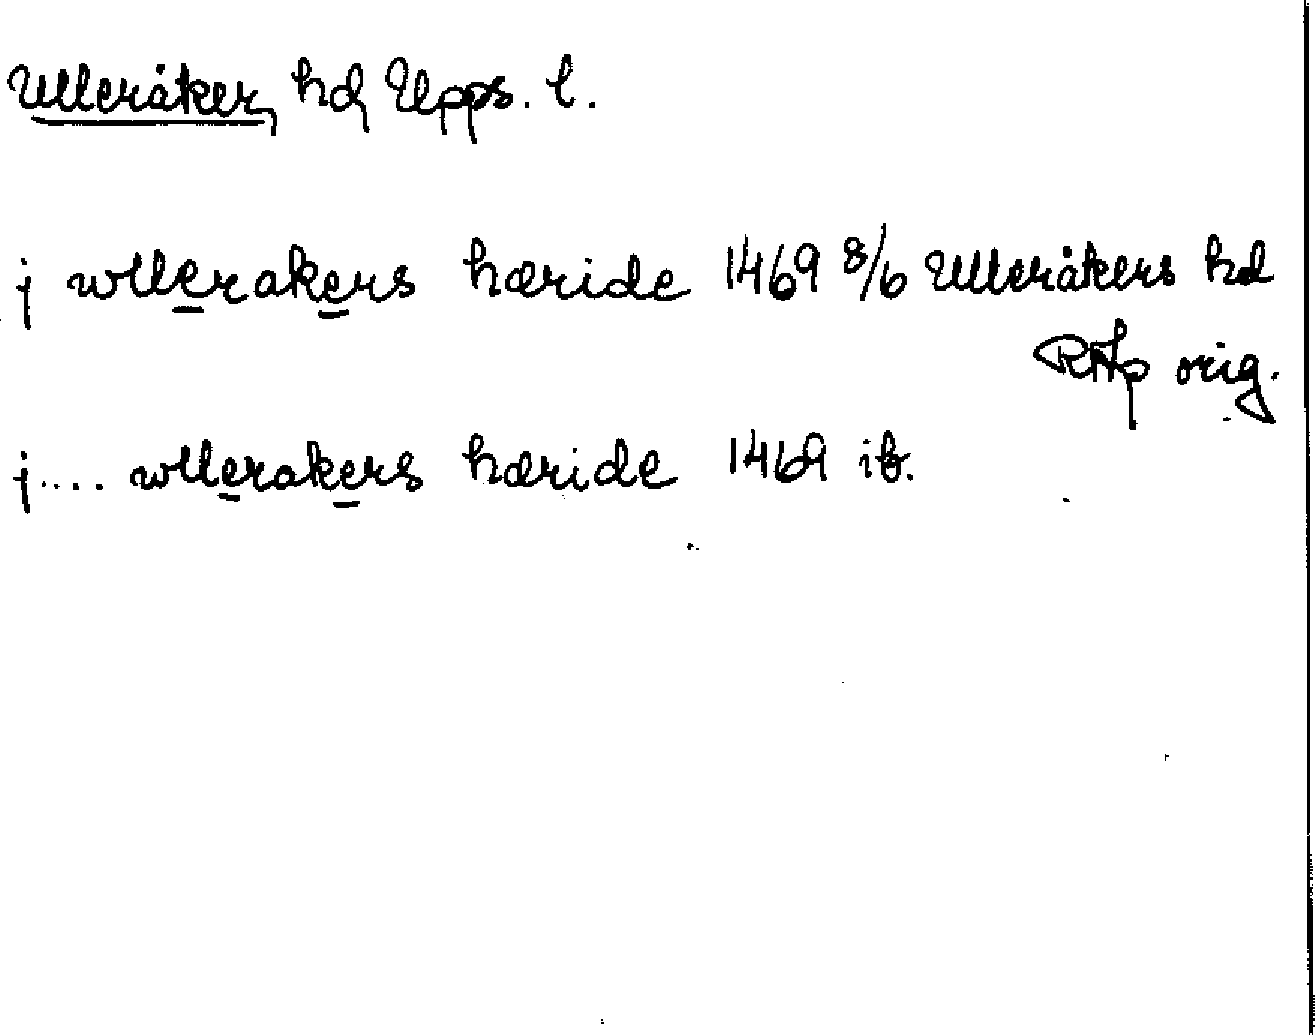 Ulleråker, hd, Upps. l.
j wllerakers hæride 1469 8/6 Ulleråkers hd
RAp orig.
j.... wllerakers hæride 1469 ib.